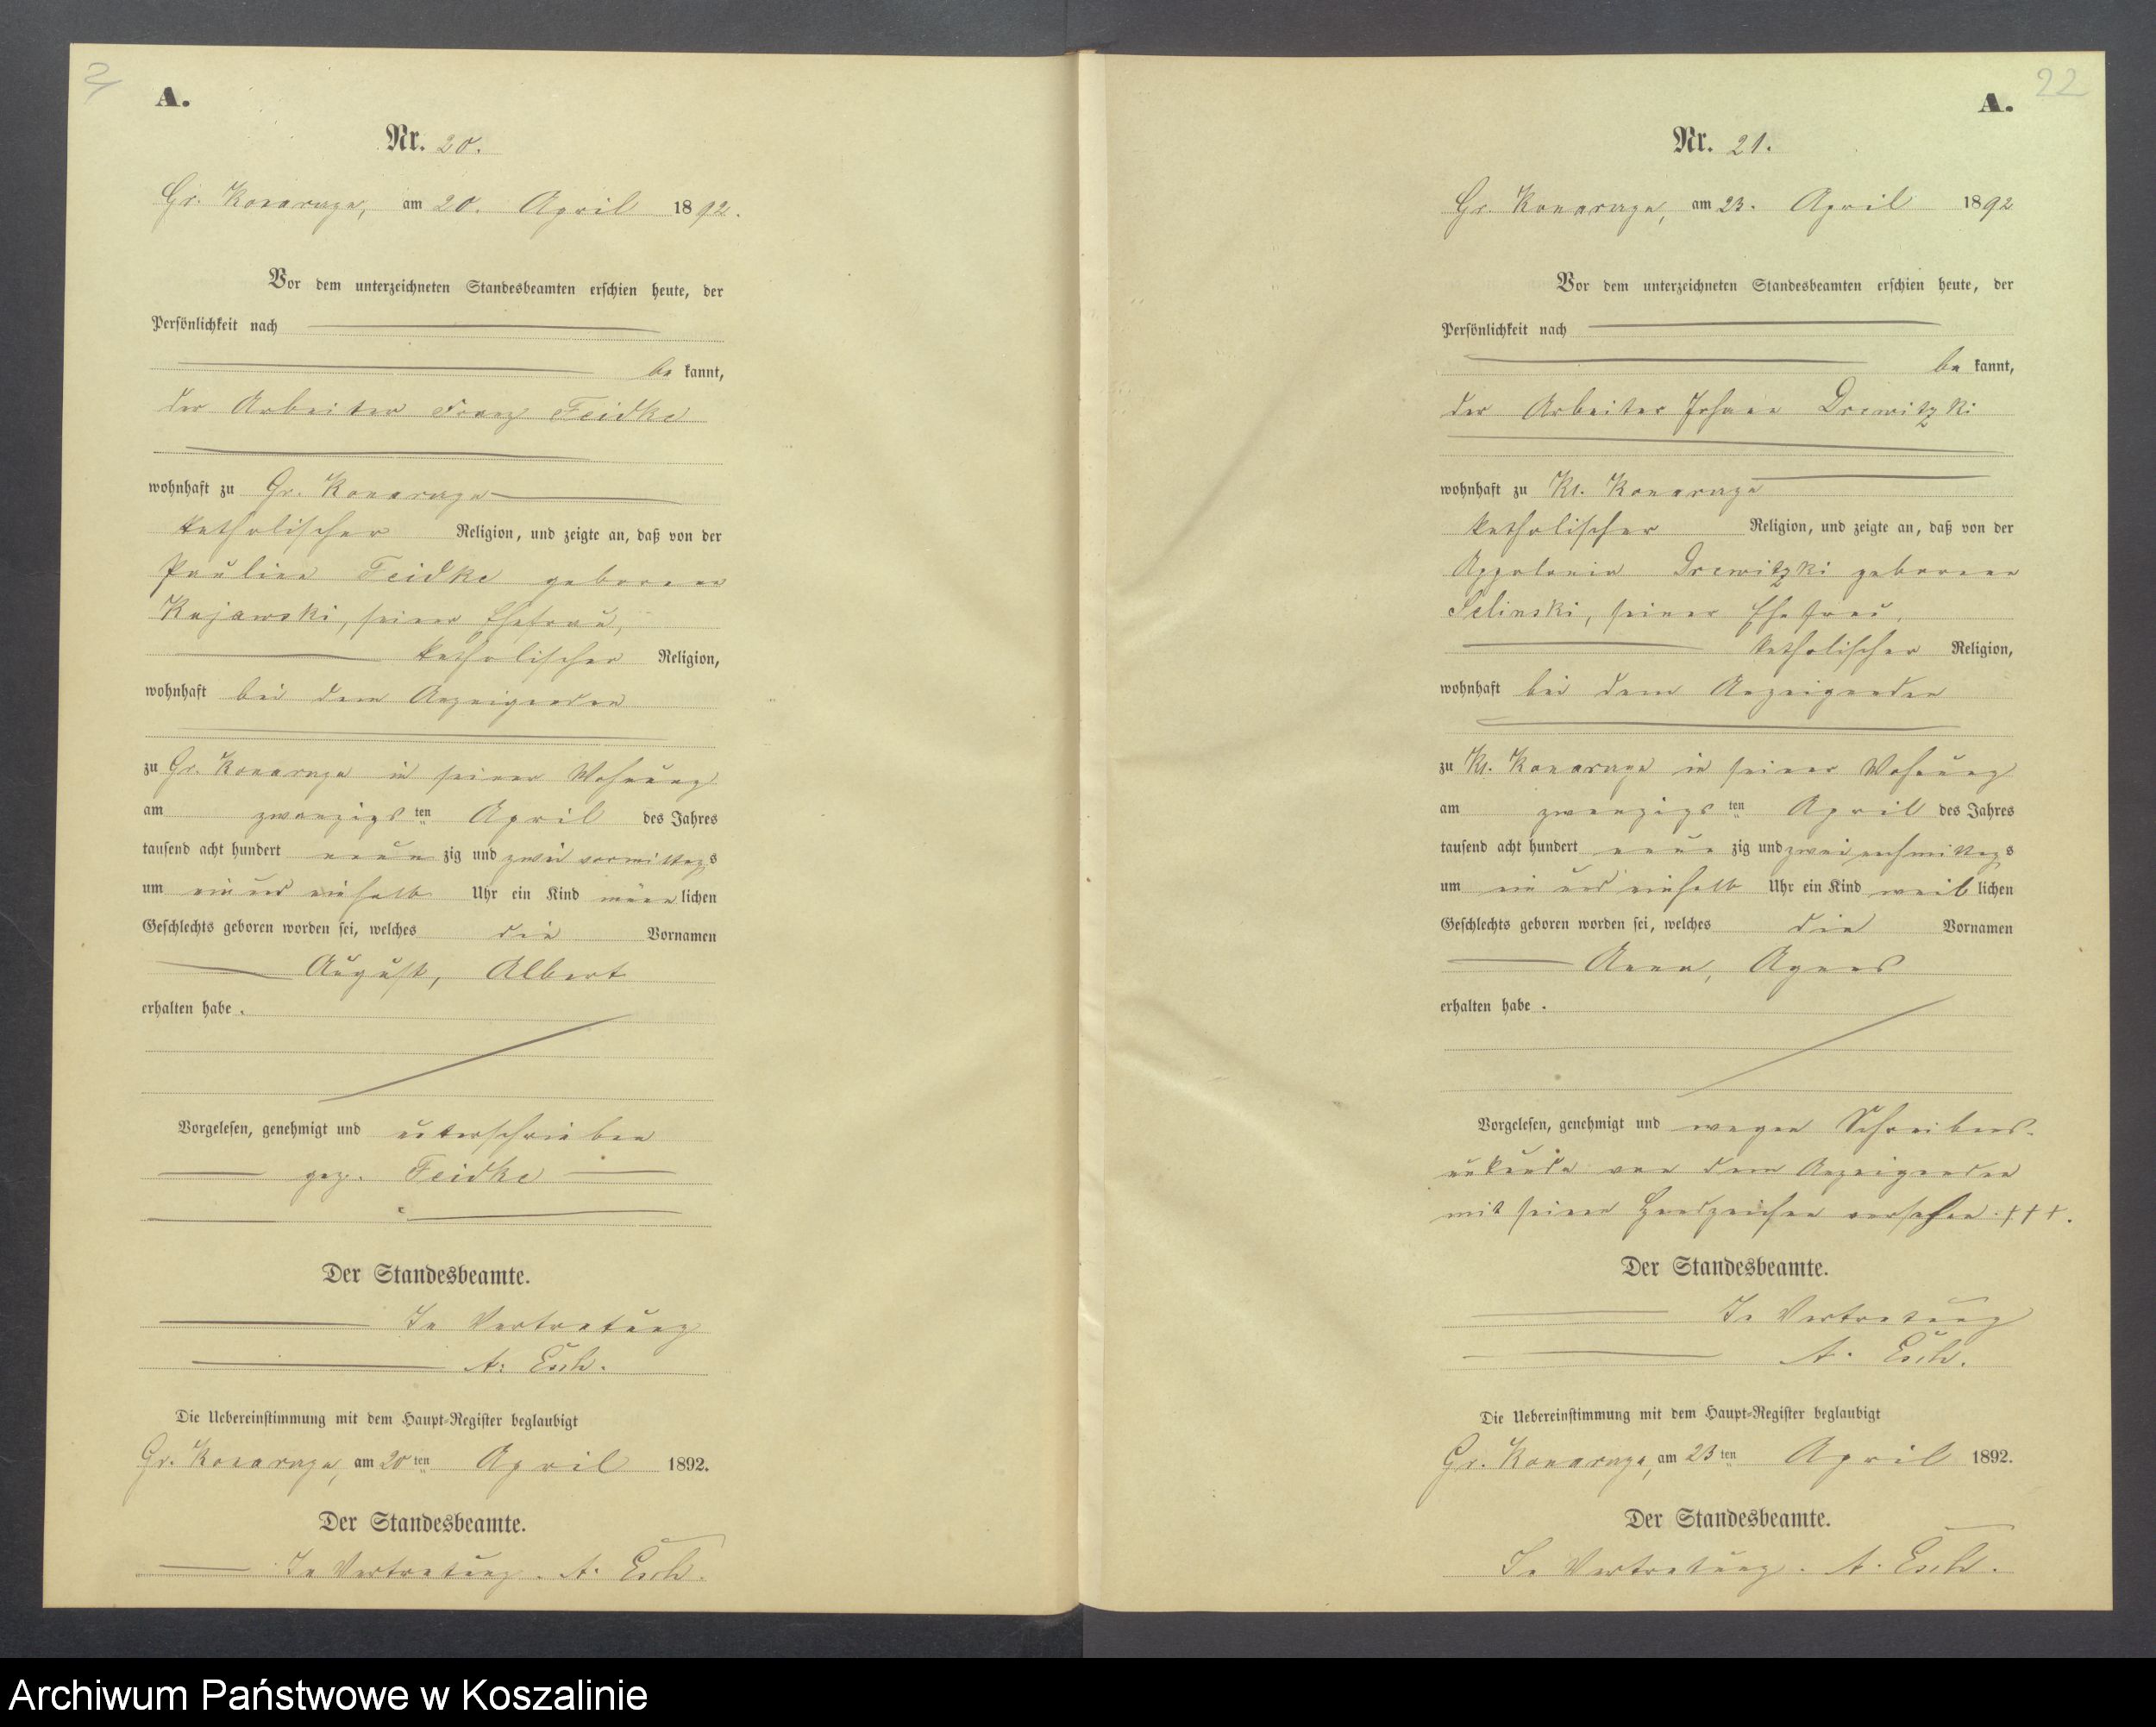 21
A.
Nr. 20.
Gr. Konarczyn, am 20. April 1892.
Vor dem unterzeichneten Standesbeamten erschien heute, der
Persönlichkeit nach
be kannt,
der Arbeiter Franz Feidke
wohnhaft zu Gr. Konarczyn
katholischer Religion, und zeigte an, daß von der
Pauline Feidke geborene
Kujawski, seiner Ehefrau,
katholischer Religion,
wohnhaft bei dem Anzeigenden
zu Gr. Konarczyn in seiner Wohnung
am zwanzigsten April des Jahres
tausend acht hundert neunzig und zwei vormittags
um ein und einhalb Uhr ein Kind männlichen
Geschlechts geboren worden sei, welches die Vornamen
August, Albert
erhalten habe.
Vorgelesen, genehmigt und unterschrieben
gez. Feidke
Der Standesbeamte.
In Vertretung
A. Esch.
Die Uebereinstimmung mit dem Haupt-Register beglaubigt
Gr. Konarczyn, am 20ten April 1892.
Der Standesbeamte.
In Vertretung. A. Esch.
22
A.
Nr. 21.
Gr. Konarczyn, am 23. April 1892
Vor dem unterzeichneten Standesbeamten erschien heute, der
Persönlichkeit nach
be kannt,
der Arbeiter Johann Drewitzki
wohnhaft zu Kl. Konarczyn
katholischer Religion, und zeigte an, daß von der
Appolonia Drewitzki geborene
Selinski, seiner Ehefrau,
katholischer Religion,
wohnhaft bei dem Anzeigenden
zu Kl. Konarczyn in seiner Wohnung
am zwanzigsten April des Jahres
tausend acht hundert neunzig und zwei nachmittags
um ein und einhalb Uhr ein Kind weiblichen
Geschlechts geboren worden sei, welches die Vornamen
Anna, Agnes
erhalten habe.
Vorgelesen, genehmigt und wegen Schreibens-
unkunde von dem Anzeigenden
mit seinem Handzeichen versehen. +++.
Der Standesbeamte.
In Vertretung
A. Esch.
Die Uebereinstimmung mit dem Haupt-Register beglaubigt
Gr. Konarczyn, am 23ten April 1892.
Der Standesbeamte.
In Vertretung. A. Esch.
Archiwum Państwowe w Koszalinie